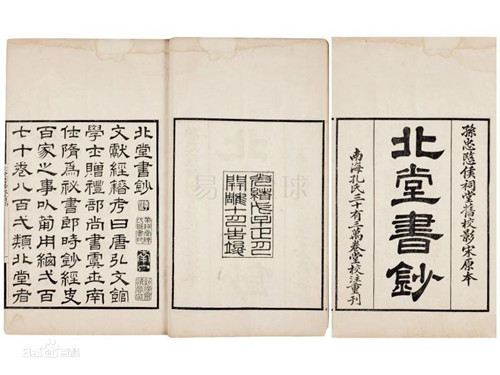 孫忠愍侯祠堂舊校影宋原本
北堂書鈔
南海孔氏三十有三萬卷堂校注重刊
光緒戊子
開雕
北堂書鈔
文獻經籍考曰唐弘文館
學士贈禮部尚書虞世南
仕隋爲祕書郎時鈔經史
百家之事㕥葡用緫弌百
七十卷八百弌類北堂者
Bai百科